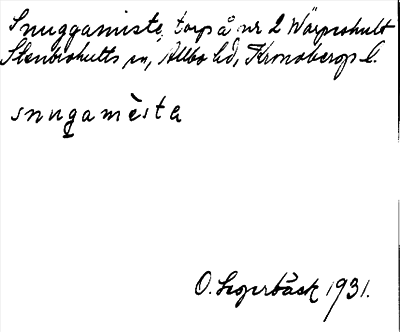 Snuggamiste, torp å nr 2 Wärpshult
Stenbrohults sn, Allbo hd, Kronobergs l.
snugamèsta
O. 1931.